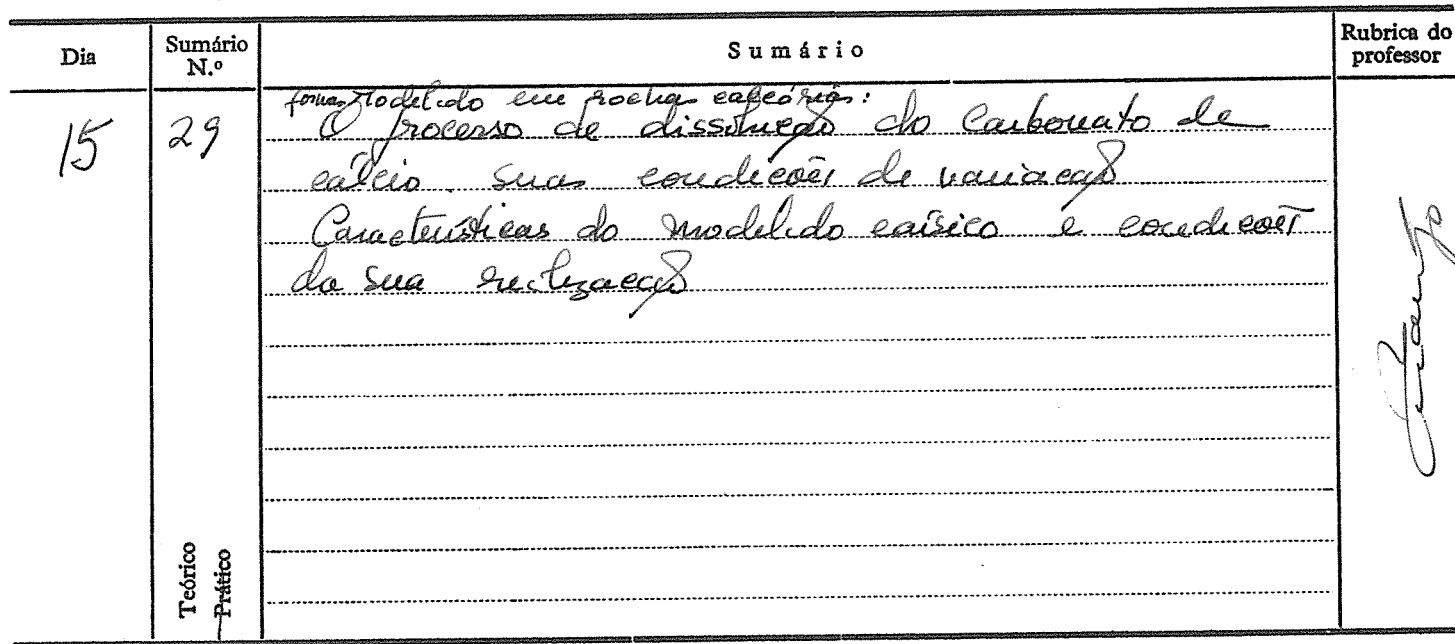 Dia
Sumário N.º
Sumário
Rubrica do professor
15
29
formas Modelado em rochas calcárias:
O processo de dissolução do Carbonato de
cálcio. Suas condições de variação
Características do modelado cársico e condições
da sua realização
Teórico
Prático